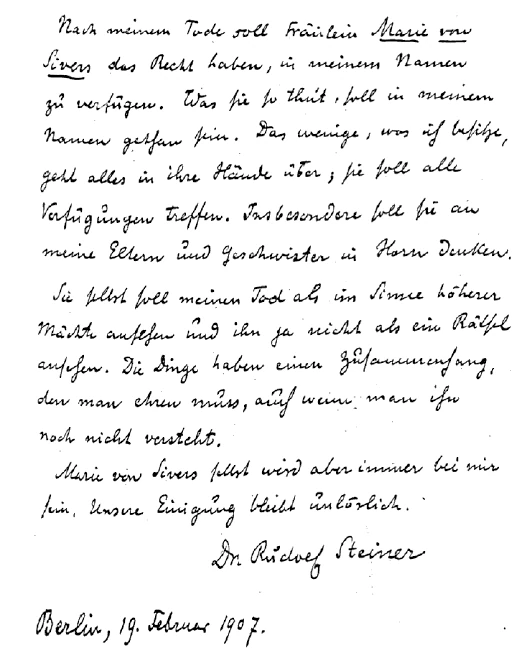 Nach meinem Tode soll Fräulein Marie von
Sivers das Recht haben, in meinem Namen
zu verfügen. Was sie so thut, soll in meinem
Namen gethan sein. Das wenige, was ich besitze,
geht alles in ihre Hände über; sie soll alle
Verfügungen treffen. Insbesondere soll sie an
meine Eltern und Geschwister in Horn denken.
Sie selbst soll meinen Tod als im Sinne höherer
Mächte ansehen und ihn ja nicht als ein Rätsel
ansehen. Die Dinge haben einen Zusammenhang,
den man ehren muss, auch wenn man ihn
noch nicht versteht.
Marie von Sivers selbst wird aber immer bei mir
sein. Unsere Einigung bleibt unlöslich.
Dr. Rudolf Steiner
Berlin, 19. Februar 1907.